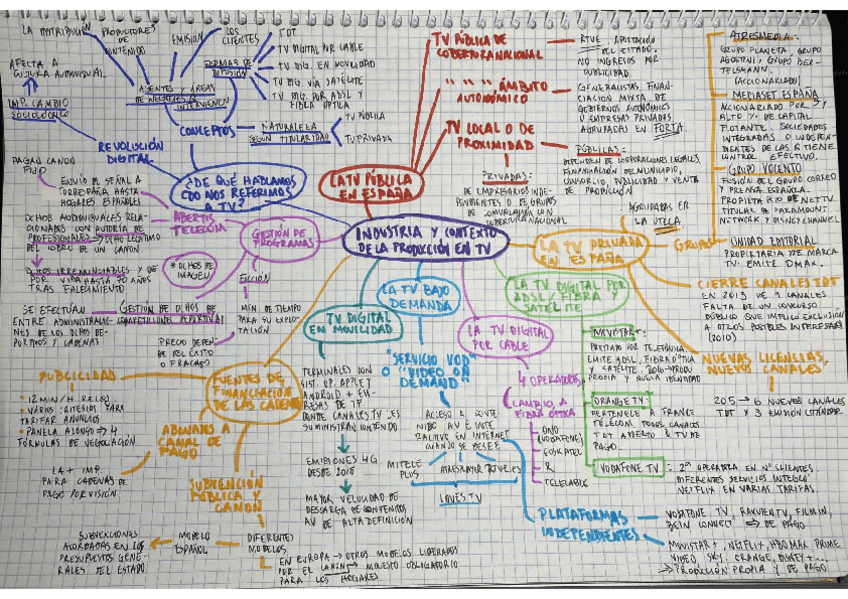 LA DISTRIBUCIÓN
PRODUCTORES DE
CONTENIDO
EMISIÓN
LOS
CLIENTES
AFECTA A
CULTURA AUDIOVISUAL
AGENTES Y ÁREAS
DE NEGOCIOS QUE
INTERVIENEN
FORMAS DE
DIFUSIÓN
TDT
TV DIGITAL POR CABLE
TV DIG. EN MOVILIDAD
TV DIG. VÍA SATÉLITE
TV DIG. POR ADSL Y
FIBRA ÓPTICA
IMP. CAMBIO
SOCIOLÓGICO
REVOLUCIÓN
DIGITAL
CONCEPTOS
NATURALEZA
SEGÚN TITULARIDAD
TV PÚBLICA
TV PRIVADA
¿DE QUÉ HABLAMOS
CDO NOS REFERIMOS
A TV?
LA TV PÚBLICA
EN ESPAÑA
TV PÚBLICA DE
COBERTURA NACIONAL
RTVE, APORTACIÓN
DEL ESTADO.
NO INGRESOS POR
PUBLICIDAD.
" " " ÁMBITO
AUTONÓMICO
GENERALISTAS, FINAN-
CIACIÓN MIXTA DE
GOBIERNOS AUTONÓMICOS
U EMPRESAS PRIVADAS
AGRUPADAS EN FORTA
TV LOCAL O DE
PROXIMIDAD
PÚBLICAS:
DEPENDEN DE CORPORACIONES LEGALES,
FINANCIACIÓN DEL MUNICIPIO,
CONSORCIO, PUBLICIDAD Y VENTA
DE PRODUCCIÓN
PRIVADAS:
DE EMPRESARIOS INDE-
PENDIENTES O DE GRUPOS
DE COMUNICACIÓN CON
COBERTURA NACIONAL
INDUSTRIA Y CONTEXTO
DE LA PRODUCCIÓN EN TV
LA TV PRIVADA
EN ESPAÑA
AGRUPADAS EN
LA UTECA
GRUPOS
ATRESMEDIA:
GRUPO PLANETA, GRUPO
AGOSTINI Y GRUPO BER-
TELSMANN.
(ACCIONARIADO)
MEDIASET ESPAÑA
ACCIONARIADO POR 5 Y
ALTO % DE CAPITAL
FLOTANTE. SOCIEDADES
INTEGRADAS O INDEPEN-
DIENTES DE LAS Q TIENE
CONTROL EFECTIVO.
GRUPO VOCENTO
FUSIÓN DEL GRUPO CORREO
Y PRENSA ESPAÑOLA.
PROPIETARIO DE NET TV.
TITULAR DE PARAMOUNT
NETWORK Y DISNEY CHANNEL
UNIDAD EDITORIAL
PROPIETARIA DE MARCA
TV. EMITE DMAX.
CIERRE CANALES TDT
EN 2013 DE 9 CANALES
FALTA DE UN CONCURSO
PÚBLICO QUE IMPLICÓ EXCLUSIÓN
A OTROS POSIBLES INTERESADOS
(2010)
NUEVAS LICENCIAS,
NUEVOS CANALES
2015 → 6 NUEVOS CANALES
TDT Y 3 EMISIÓN ESTÁNDAR
PAGAN CANON
FIJO
ENVÍO DE SEÑAL A
TORRESPAÑA HASTA
HOGARES ESPAÑOLES
ABERTIS
TELECOM
GESTIÓN DE
PROGRAMAS
DCHOS AUDIOVISUALES RELA-
CIONADAS CON AUTORÍA DE
PROFESIONALES → DCHO LEGÍTIMO
DEL COBRO DE UN CANON
DCHOS IRRENUNCIABLES Y DE
POR VIDA HASTA 70 AÑOS
TRAS FALLECIMIENTO
* DCHOS DE
IMAGEN
FICCIÓN
MIN. DE TIEMPO
PARA SU EXPLO-
TACIÓN
PRECIO DEPEN-
DE DEL ÉXITO
O FRACASO
SE EFECTÚAN
ENTRE ADMINISTRACIO-
NES DE LOS DCHO DE-
PORTIVOS Y CADENAS
GESTIÓN DE DCHOS DE
COMPETICIONES DEPORTIVAS
FUENTES DE
FINANCIACIÓN
DE LAS CADENAS
PUBLICIDAD
• 12 MIN/H RELOJ
• VARIOS CRITERIOS PARA
TARIFAR ANUNCIOS
• 4
FÓRMULAS DE NEGOCIACIÓN
ABONADOS A
CANAL DE
PAGO
LA + IMP.
PARA CADENAS DE
PAGO POR VISIÓN
SUBVENCIÓN
PÚBLICA Y
CANON
DIFERENTES
MODELOS
MODELO
ESPAÑOL
SUBVENCIONES
ACORDADAS EN LOS
PRESUPUESTOS GENE-
RALES DEL ESTADO
EN EUROPA → OTROS MODELOS LIDERADOS
POR EL CANON → IMPUESTO OBLIGATORIO
PARA LOS HOGARES
TV DIGITAL
EN MOVILIDAD
TERMINALES CON
SIST. OP. APPLE Y
ANDROID + EM-
PRESAS DE TF.
CANALES TV
SUMINISTRAN CONTENIDO
EMISIONES 4G
DESDE 2018
MAYOR VELOCIDAD DE
DESCARGA DE CONTENIDOS
AV DE ALTA DEFINICIÓN
LA TV BAJO
DEMANDA
"SERVICIO VOD"
O "VIDEO ON
DEMAND"
ACCESO A CONTE-
NIDO AV E INTE-
RACTIVO EN INTERNET
CUANDO SE DESEE
MITELE
PLUS
ATRESPLAYER
RTVE.ES
LOVES TV
PLATAFORMAS
INDEPENDIENTES
VODAFONE TV, RAKUTEN TV, FILMIN,
BEIN CONNECT ⇒ DE PAGO
MOVISTAR+, NETFLIX, HBO MAX, PRIME
VIDEO, SKY, ORANGE, DISNEY+...
⇒ PRODUCCIÓN PROPIA Y DE PAGO
LA TV DIGITAL
POR CABLE
4 OPERADORES
CAMBIO A
FIBRA ÓPTICA
ONO
(VODAFONE)
EUSKALTEL
R
TELECABLE
LA TV DIGITAL POR
ADSL / FIBRA Y
SATÉLITE
MOVISTAR+:
PRESTADO POR TELEFÓNICA
EMITE ADSL, FIBRA ÓPTICA
Y SATÉLITE, 2016 → PRODU
PROPIA Y NUEVA IDENTIDAD
ORANGE TV:
PERTENECE A FRANCE
TELECOM. TODOS CANALES
TDT ABIERTO & TV DE
PAGO
VODAFONE TV: 2º OPERADORA EN Nº CLIENTES.
DIFERENTES SERVICIOS INTEGRÓ
NETFLIX EN VARIAS TARIFAS.